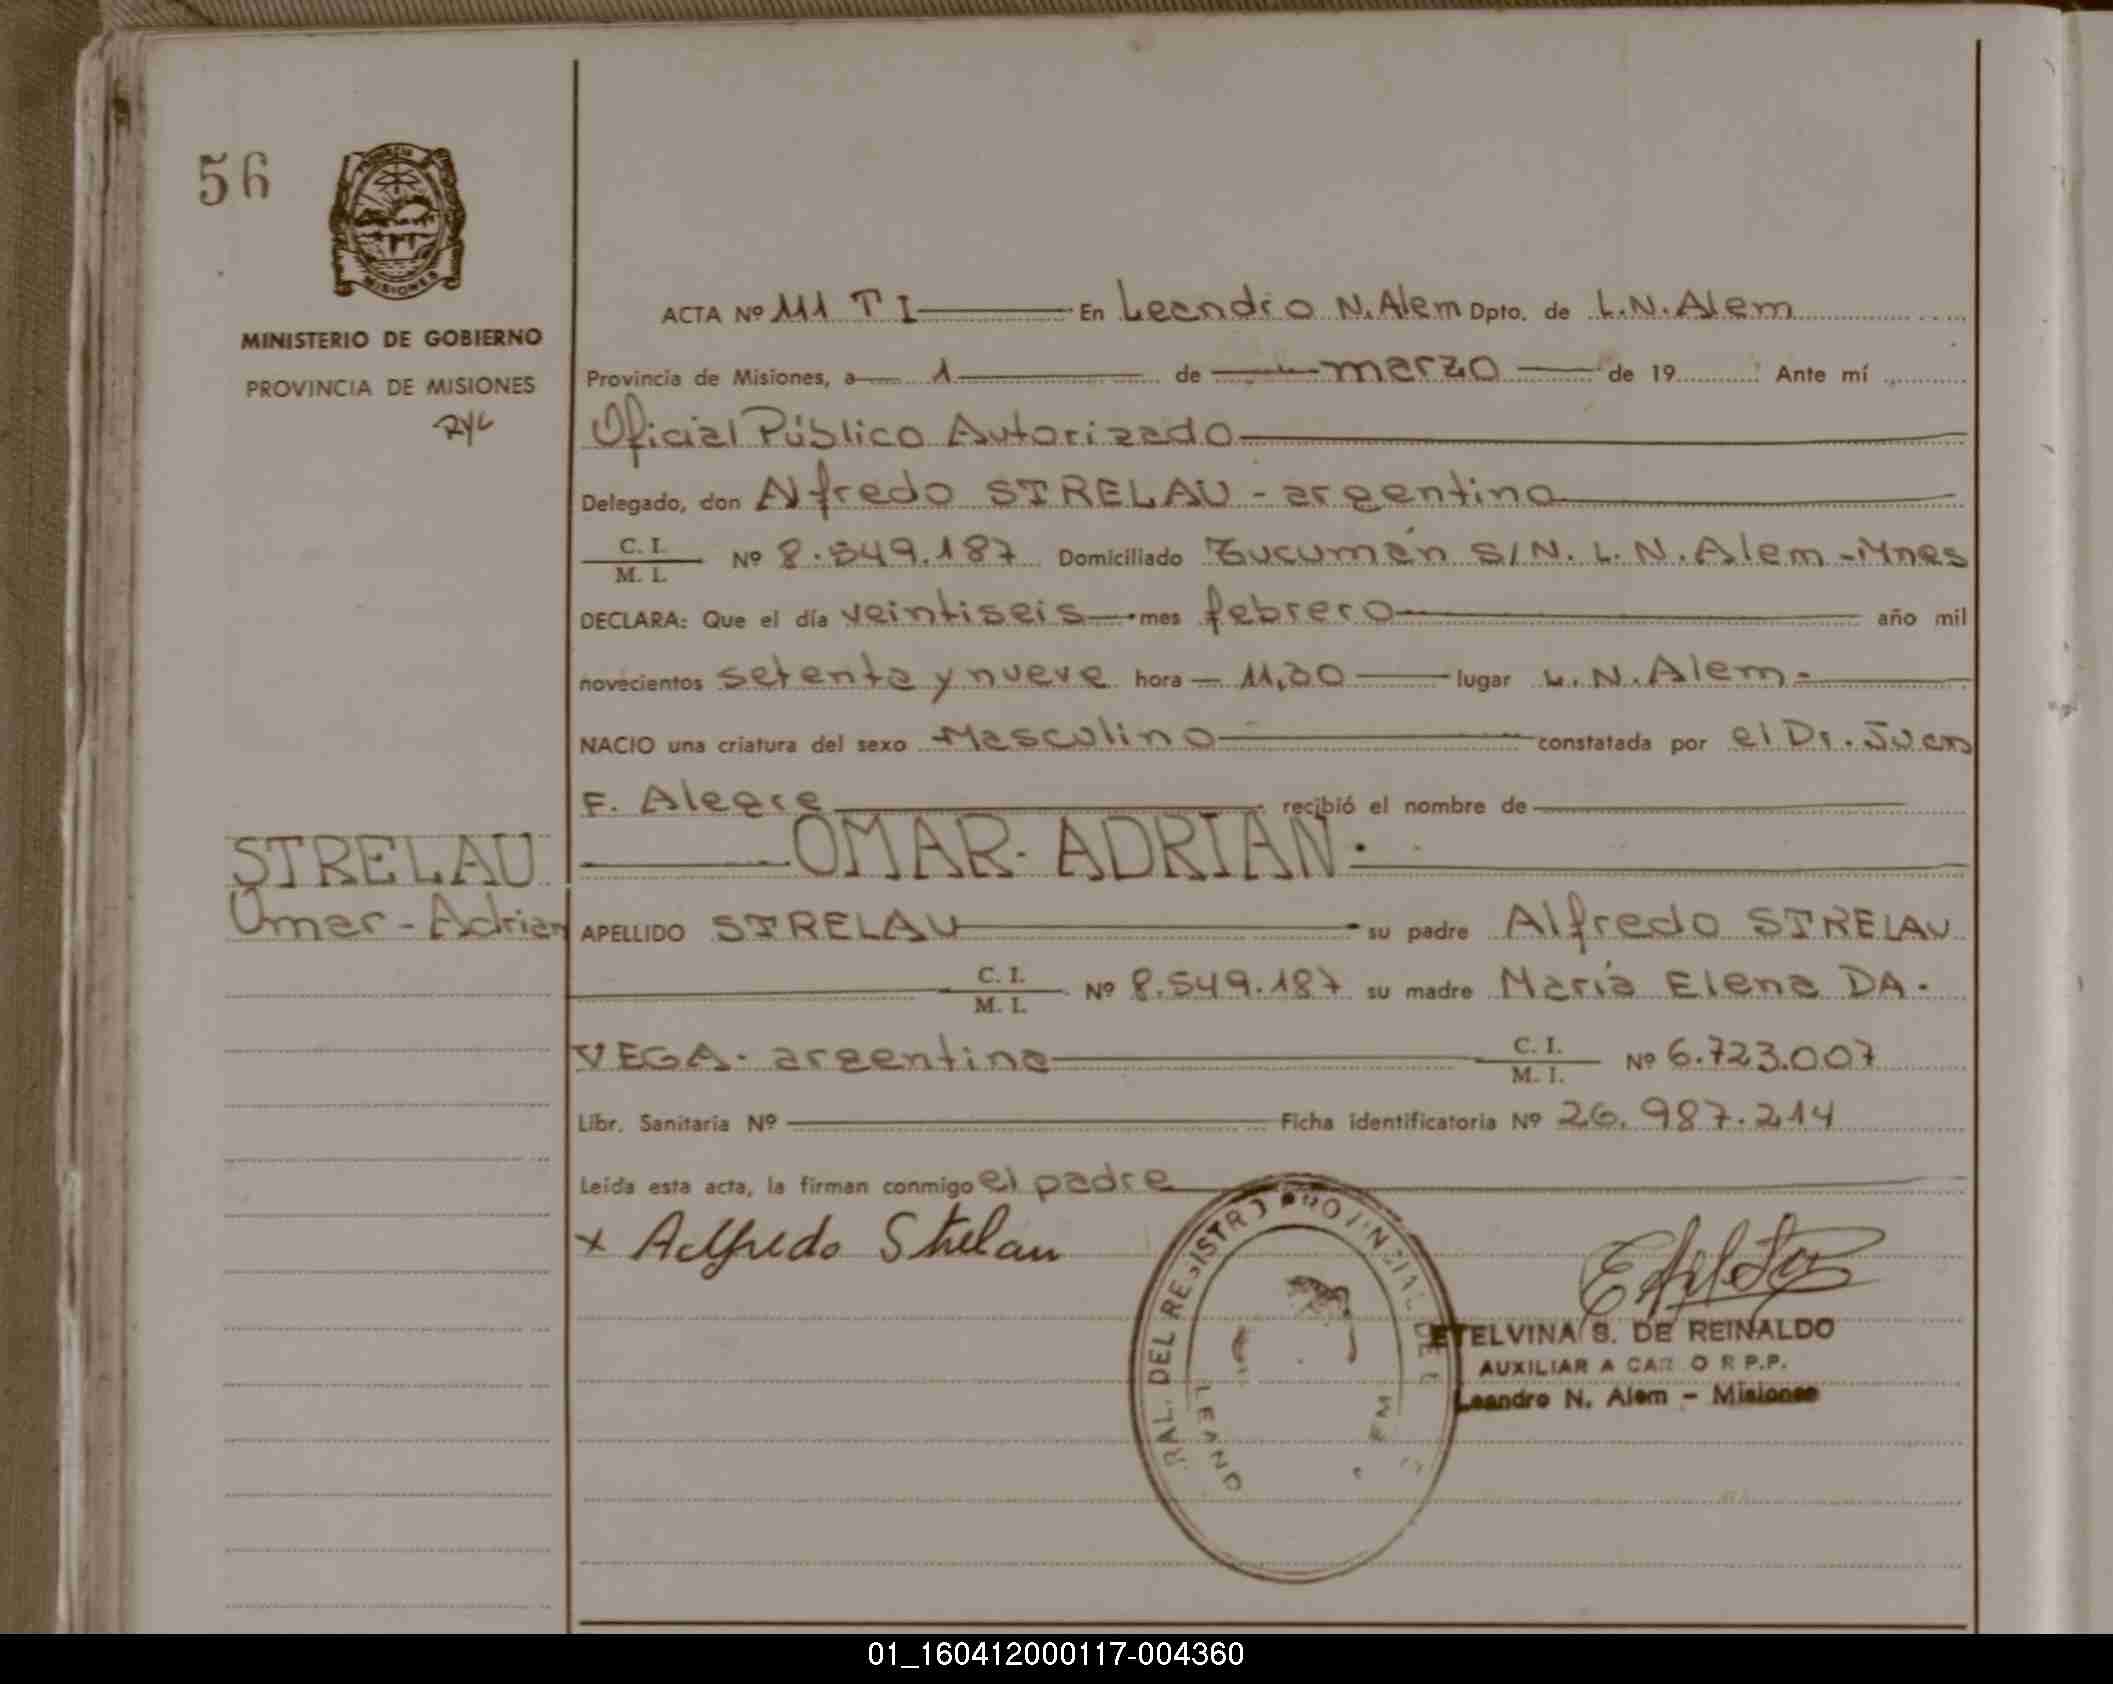 56
MISIONES
MINISTERIO DE GOBIERNO
PROVINCIA DE MISIONES
ACTA Nº 111 T I En Leandro N. Alem Dpto. de L.N. Alem
Provincia de Misiones, a 1 de marzo de 19 Ante mí
Oficial Público Autorizado
Delegado, don Alfredo STRELAU - argentino
C. I.
M. I. Nº 8.549.187 Domiciliado Tucumán S/N. L. N. Alem - Mnes
DECLARA: Que el día veintiseis mes febrero año mil
novecientos setenta y nueve hora 11,30 lugar L. N. Alem -
NACIO una criatura del sexo Masculino constatada por el Dr. Juan
F. Alegre recibió el nombre de
OMAR - ADRIAN.
STRELAU
Omar - Adrian
APELLIDO STRELAU su padre Alfredo STRELAU
C. I.
M. I. Nº 8.549.187 su madre María Elena DA.
VEGA. argentina C. I.
M. I. Nº 6.723.007
Libr. Sanitaria Nº Ficha identificatoria Nº 26.987.214
Leída esta acta, la firman conmigo el padre
x Alfredo Strelau
RAL. DEL REGISTRO PROVINCIAL DE
LEAND
ETELVINA S. DE REINALDO
AUXILIAR A CAR O R P.P.
Leandro N. Alem - Misiones
01_160412000117-004360